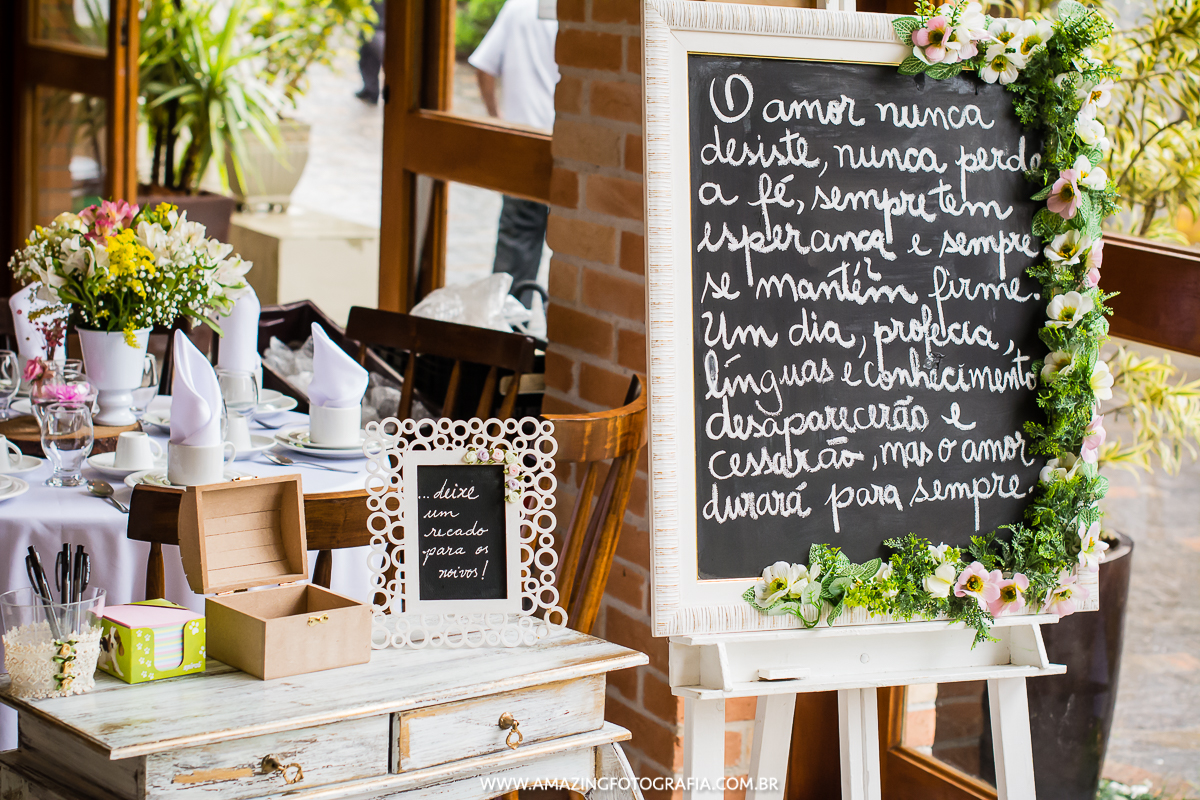 O amor nunca
desiste, nunca perde
a fé, sempre tem
esperança e sempre
se mantém firme.
Um dia, profecia,
línguas e conhecimento
desaparecerão e
cessarão, mas o amor
durará para sempre.
...deixe
um
recado
para os
noivos!
WWW.AMAZINGFOTOGRAFIA.COM.BR